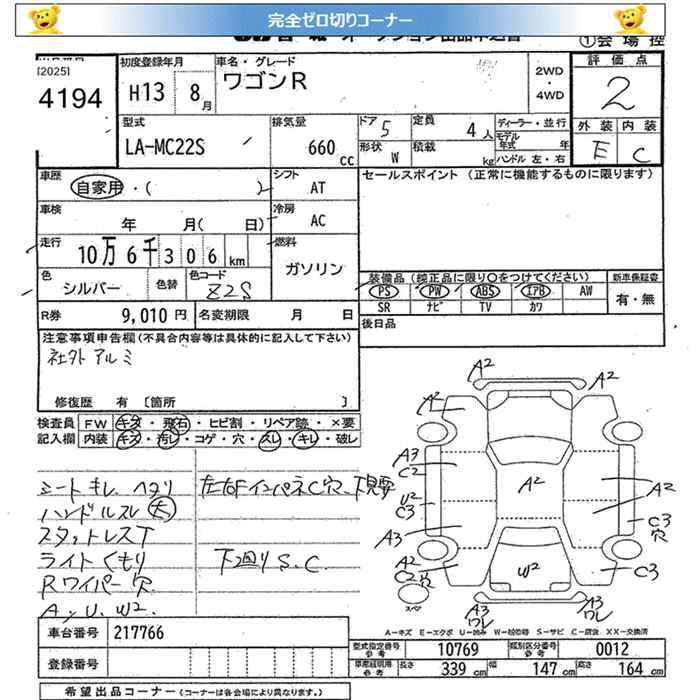 完全ゼロ切りコーナー
①会場控
[2025]
4194
初度登録年月
H13 8月
車名・グレード
ワゴンR
2WD・4WD
評価点
2
外装 内装
E C
型式
LA-MC22S
排気量
660cc
ドア 5
形状 W
定員 4人
積載 kg
ディーラー・並行
モデル年式 年
ハンドル 左・右
車歴
自家用・( )
シフト
AT
車検
年 月( 日)
冷房
AC
走行
10万6千306km
燃料
ガソリン
色
シルバー
色替
色コード
Z2S
R券
9,010円
名変期限 月 日
セールスポイント (正常に機能するものに限ります)
装備品(純正品に限り○をつけてください)
PS PW ABS エアB AW
SR ナビ TV カワ
新車保証書
有・無
後日品
注意事項申告欄(不具合内容等は具体的に記入して下さい)
社外アルミ
修復歴 有 〔箇所 〕
検査員記入欄
FW キズ・飛石・ヒビ割・リペア跡・×要
内装 キズ・汚レ・コゲ・穴・スレ・キレ・破レ
シートキレ、ヘタリ
ハンドルスレ大
スタットレスT
ライトくもり
Rワイパー穴
A,U,W2.
左右FインパネC穴、下見要
下廻りS.C.
A2
A2
A2
A3
C2
U2
C3
A3
A2
C2穴
スペア
A2
A2
C3
穴
C3
W2
A3
ワレ
A3
ワレ
A-キズ E-エクボ U-凹み W-板金跡 S-サビ C-腐食 XX-交換済
車台番号
217766
登録番号
型式指定番号 参考
10769
類別区分番号 参考
0012
車庫証明用 参考
長さ 339cm 幅 147cm 高さ 164cm
希望出品コーナー (コーナーは各会場により異なります。)